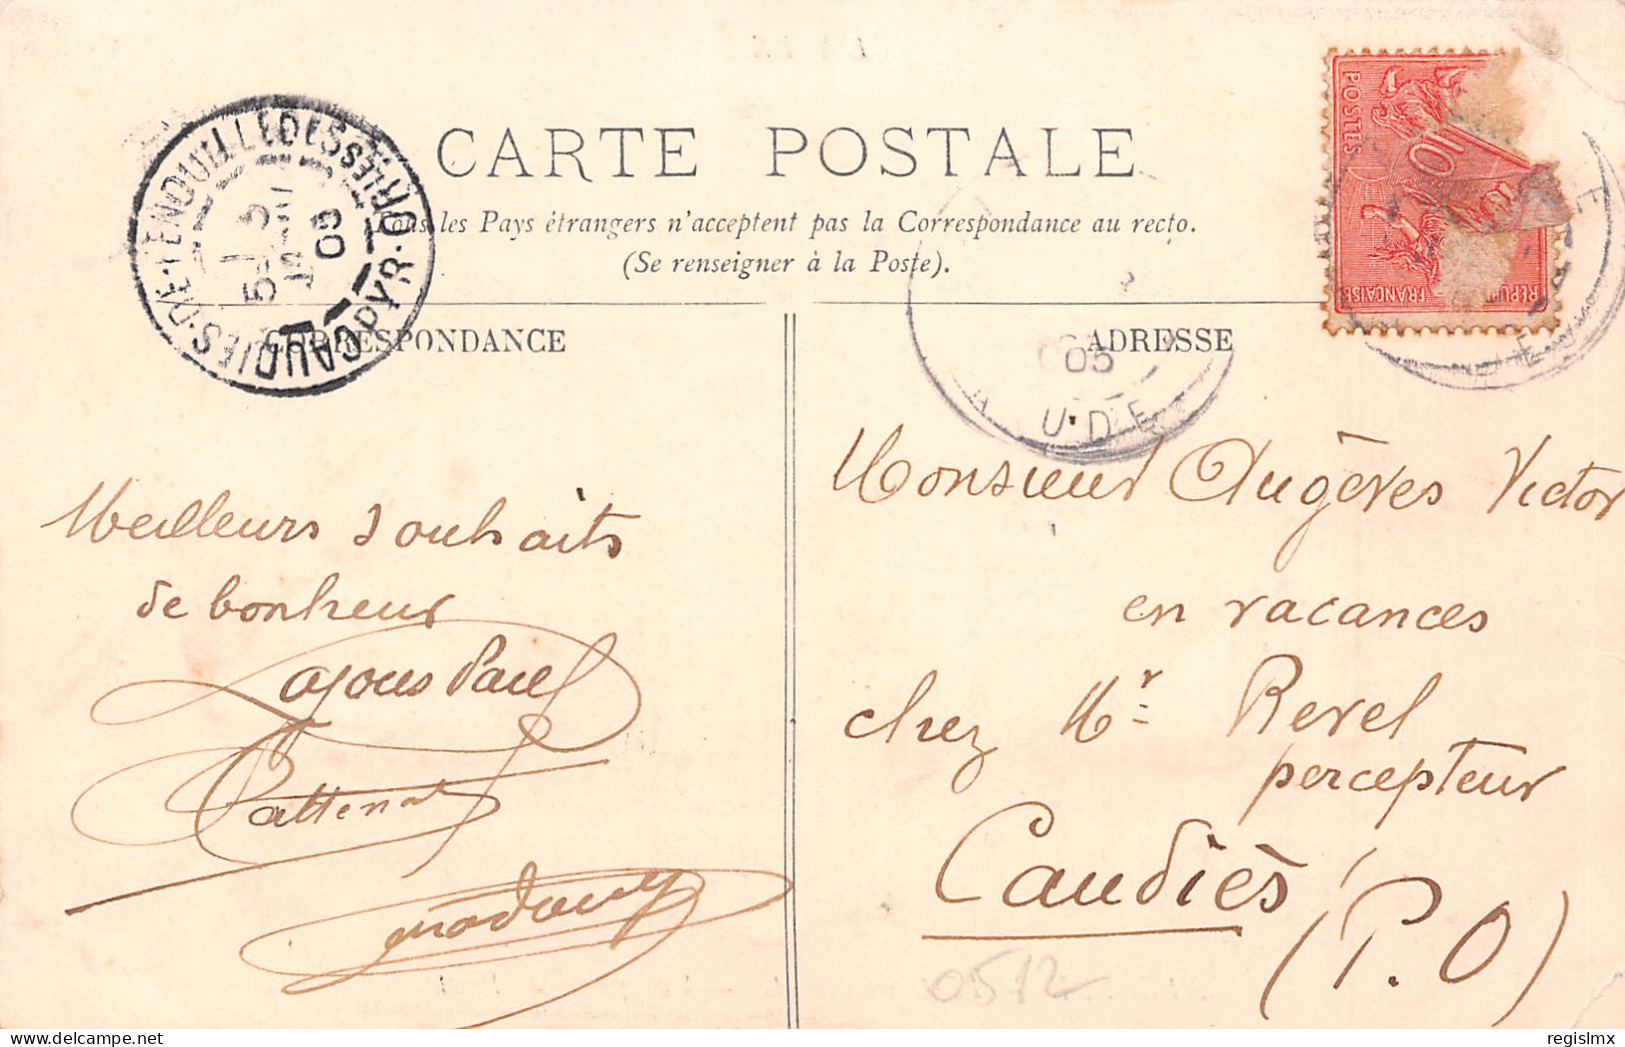 CARTE POSTALE
Tous les Pays étrangers n'acceptent pas la Correspondance au recto.
(Se renseigner à la Poste).
CORRESPONDANCE
ADRESSE
CAUDIÈS-DE-FENOUILLEDES
PYR.-ORLES
05
05
AUDE
POSTES
10
FRANÇAISE
Meilleurs souhaits
de bonheur
Paul
Monsieur Augères Victor
en vacances
chez Mr Revel
percepteur
Caudiès
(P.O)
0512
regislmx